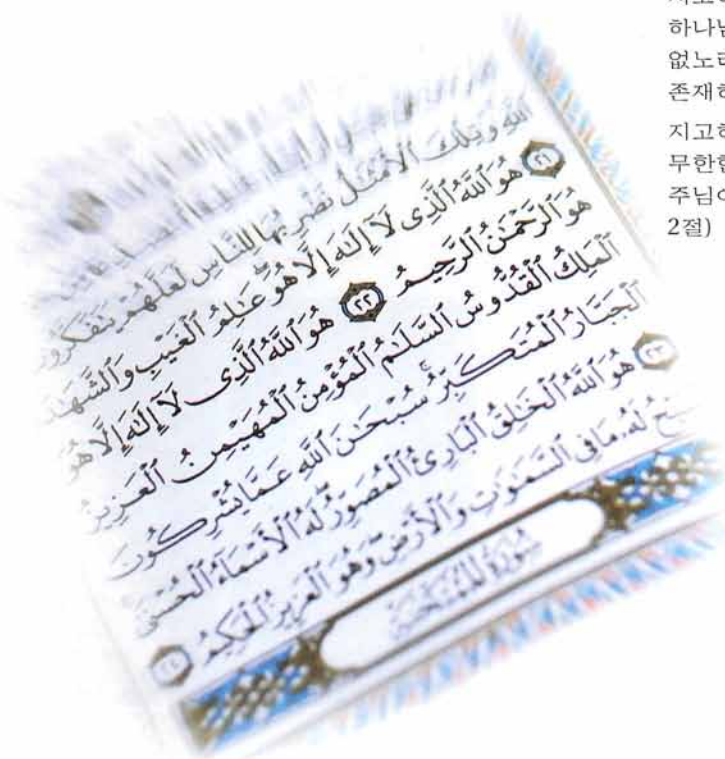 하나님
없노라
존재하
지고하
무한한
주님이
2절)
ٱللَّهِ وَتِلْكَ ٱلْأَمْثَٰلُ نَضْرِبُهَا لِلنَّاسِ لَعَلَّهُمْ يَتَفَكَّرُونَ
٢١ هُوَ ٱللَّهُ ٱلَّذِى لَآ إِلَٰهَ إِلَّا هُوَ عَٰلِمُ ٱلْغَيْبِ وَٱلشَّهَٰدَ
هُوَ ٱلرَّحْمَٰنُ ٱلرَّحِيمُ ٢٢ هُوَ ٱللَّهُ ٱلَّذِى لَآ إِلَٰهَ إِلَّا هُوَ
ٱلْمَلِكُ ٱلْقُدُّوسُ ٱلسَّلَٰمُ ٱلْمُؤْمِنُ ٱلْمُهَيْمِنُ ٱلْعَزِيزُ
ٱلْجَبَّارُ ٱلْمُتَكَبِّرُ ۚ سُبْحَٰنَ ٱللَّهِ عَمَّا يُشْرِكُونَ
٢٣ هُوَ ٱللَّهُ ٱلْخَٰلِقُ ٱلْبَارِئُ ٱلْمُصَوِّرُ ۖ لَهُ ٱلْأَسْمَآءُ ٱلْحُسْنَىٰ
لَهُۥ مَا فِى ٱلسَّمَٰوَٰتِ وَٱلْأَرْضِ ۖ وَهُوَ ٱلْعَزِيزُ ٱلْحَكِيمُ ٢٤
سُورَةُ الْمُمْتَحِنَةِ